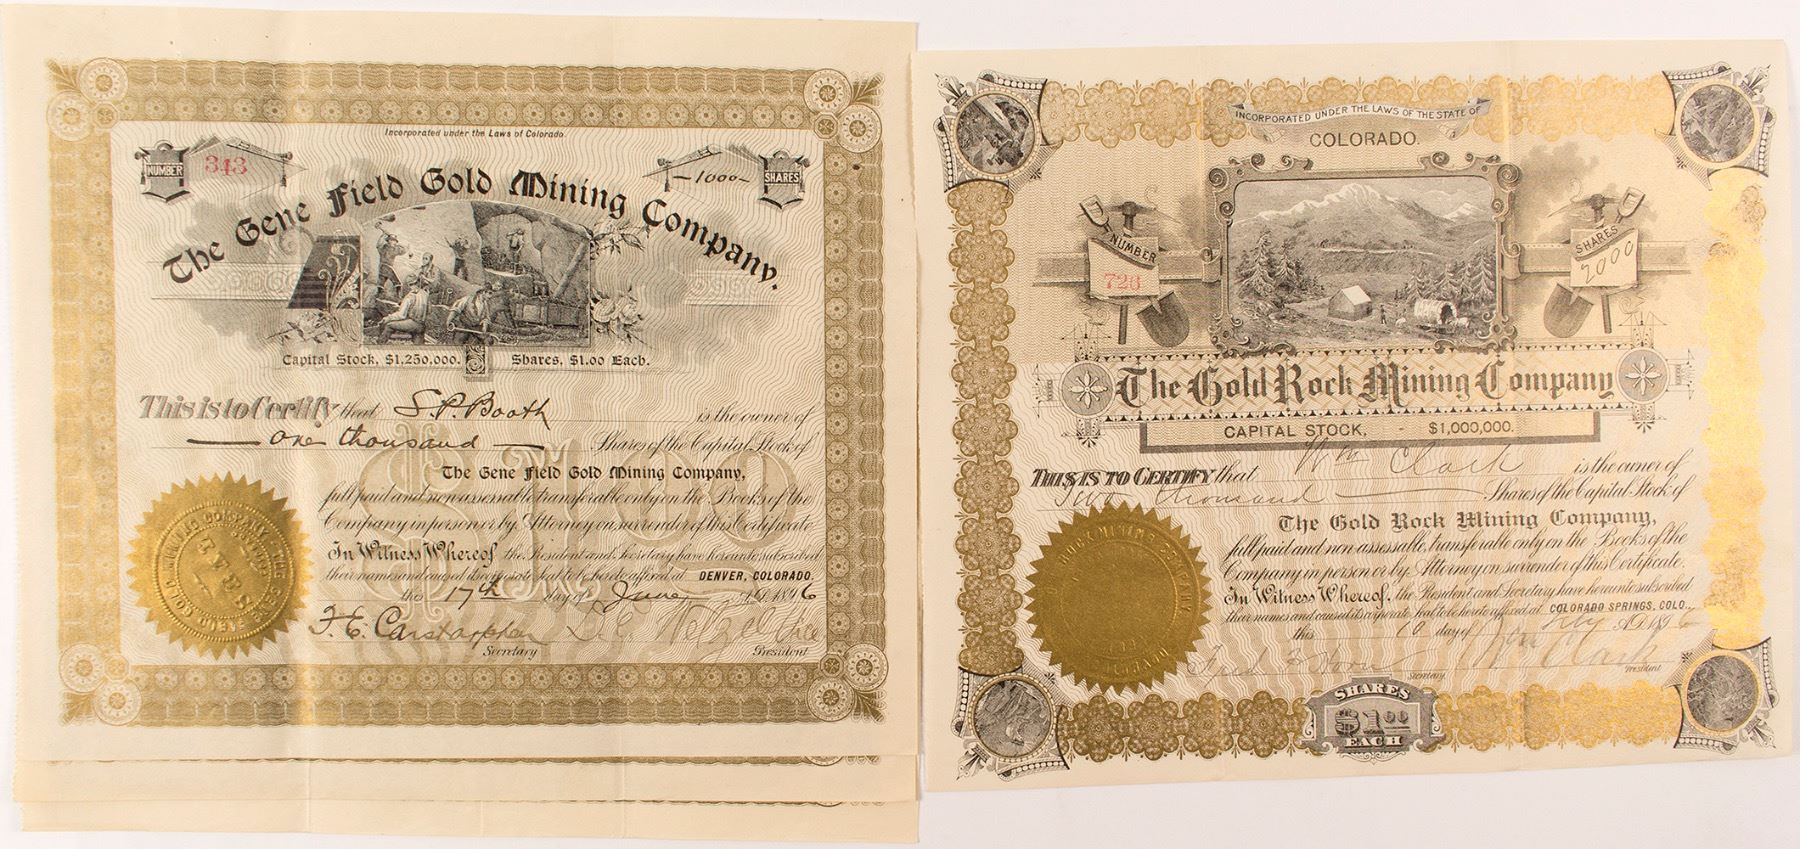 Incorporated under the Laws of Colorado.
NUMBER 343
—1000— SHARES
The Gene Field Gold Mining Company.
Capital Stock, $1,250,000. Shares, $1.00 Each.
This is to Certify that S. P. Booth is the owner of
— one thousand — Shares of the Capital Stock of
The Gene Field Gold Mining Company,
full paid and non assessable transferable only on the Books of the
Company in person or by Attorney on surrender of this Certificate
In Witness Whereof, the President and Secretary have hereunto subscribed
their names and caused its corporate Seal to be hereto affixed at DENVER, COLORADO.
this 17th day of June A.D. 1896
F. E. Carstarphen
Secretary President
SEAL
INCORPORATED UNDER THE LAWS OF THE STATE OF
COLORADO.
NUMBER
723
SHARES
2000
The Gold Rock Mining Company
CAPITAL STOCK, - $1,000,000.
THIS IS TO CERTIFY that Wm Clark is the owner of
Two thousand — Shares of the Capital Stock of
The Gold Rock Mining Company,
full paid and non assessable, transferable only on the Books of the
Company in person or by Attorney on surrender of this Certificate.
In Witness Whereof, the President and Secretary have hereunto subscribed
their names and caused its corporate Seal to be hereto affixed at COLORADO SPRINGS, COLO.,
this 10 day of A.D. 1896
Fred F. Horn Wm Clark
Secretary. President
SHARES
$1.00
EACH